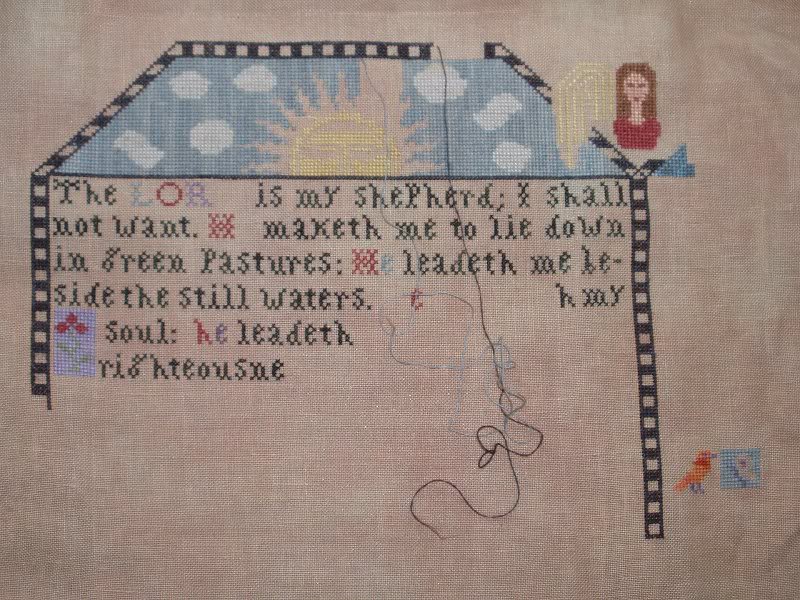 The LOR is my shepherd; I shall
not want. H maketh me to lie down
in green pastures: He leadeth me be-
side the still waters. e h my
soul: he leadeth
righteousne